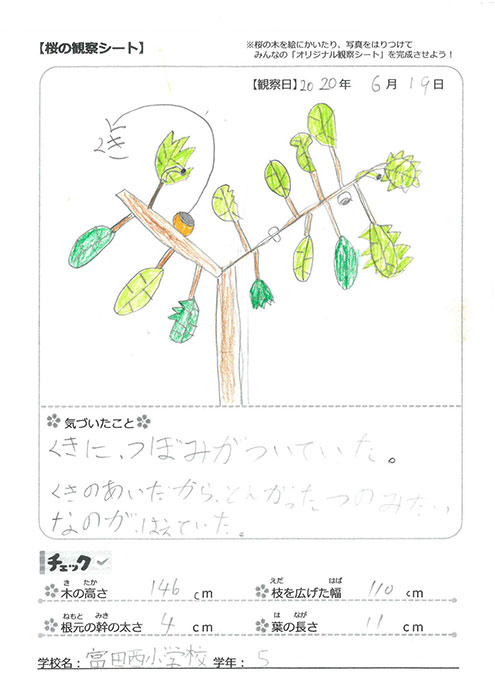 【桜の観察シート】
※桜の木を絵にかいたり、写真をはりつけて
みんなの「オリジナル観察シート」を完成させよう！
【観察日】2020年 6月 19日
くき
気づいたこと
くきに、つぼみがついていた。
くきのあいだから、とんがったつのみたい
なのが、はえていた。
チェック
木の高さ 146 cm
枝を広げた幅 110 cm
根元の幹の太さ 4 cm
葉の長さ 11 cm
学校名：富田西小学校 学年：5